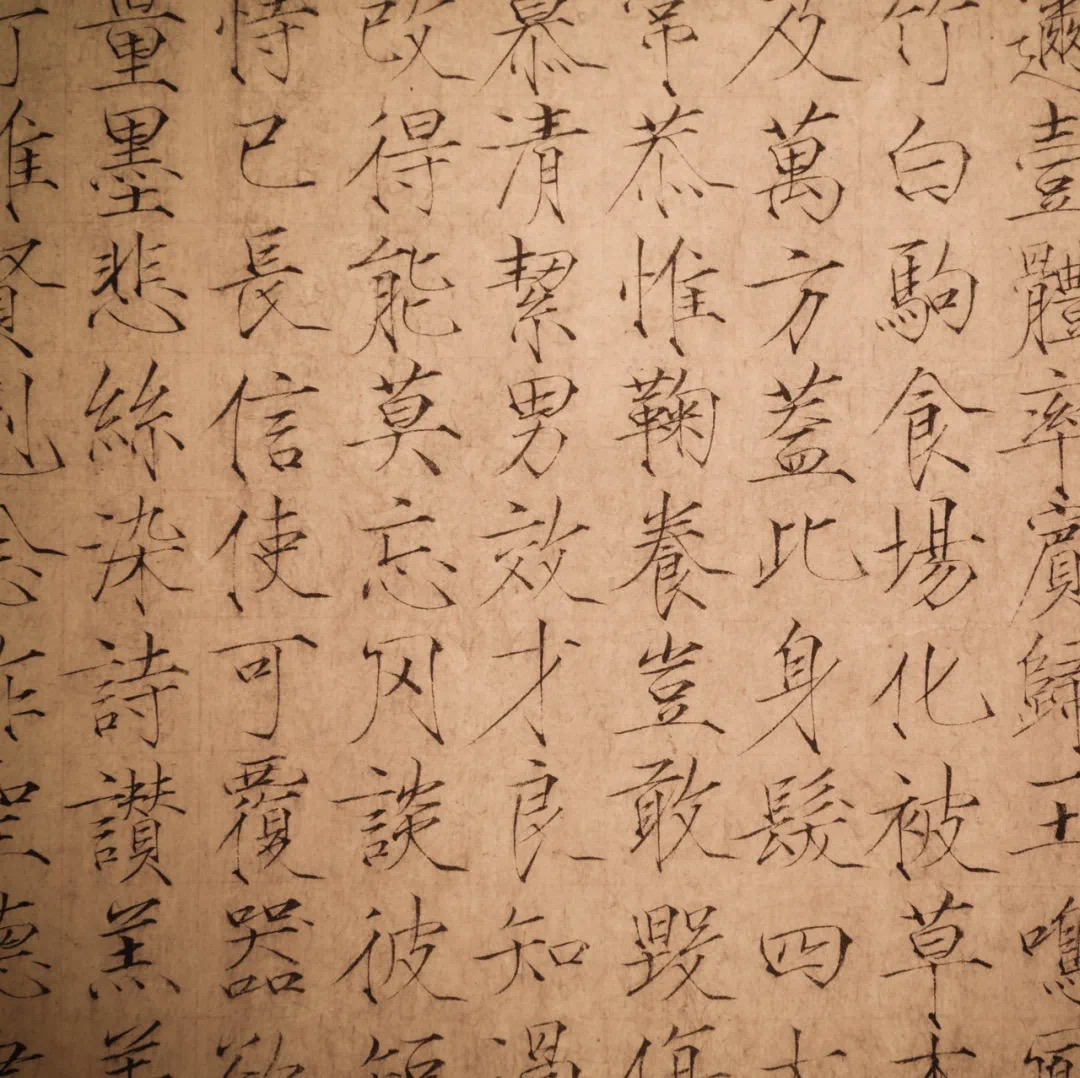 邇壹體率賓歸王鳴
竹白駒食場化被草木
及萬方蓋此身髮四大
常恭惟鞠養豈敢毀傷
慕清絜男效才良知過
改得能莫忘罔談彼短
恃己長信使可覆器欲
量墨悲絲染詩讚羔羊
賢剋念作聖德